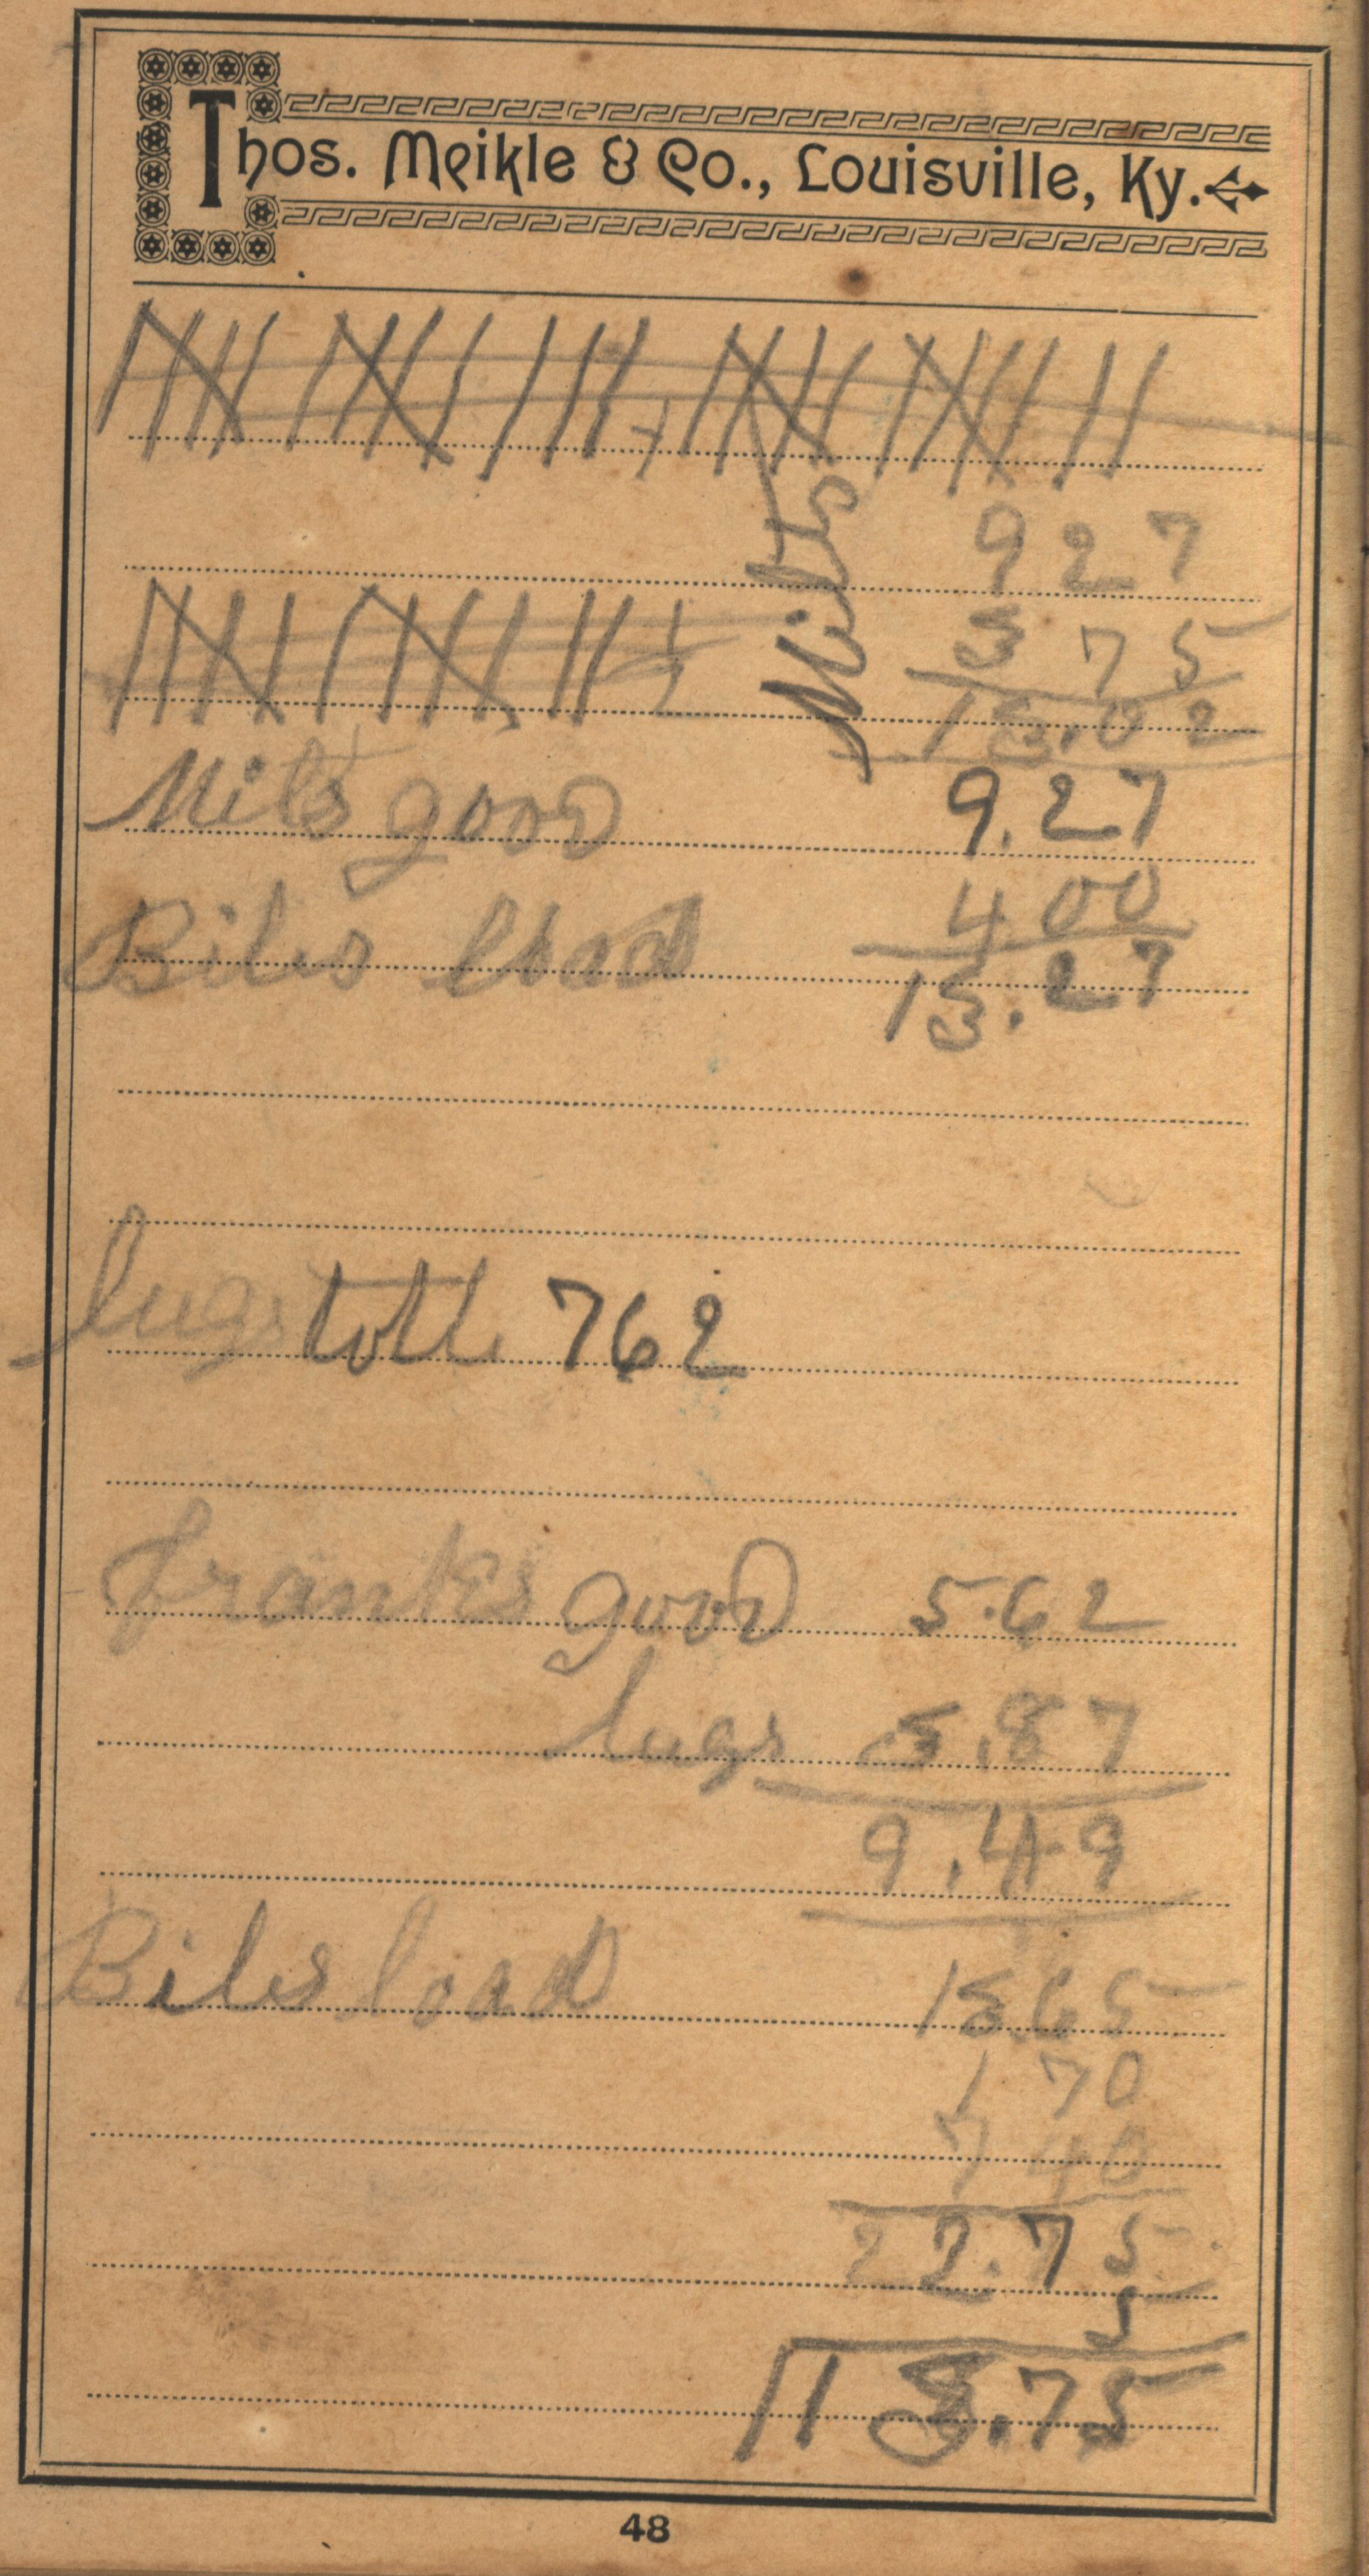 Thos. Meikle & Co., Louisville, Ky.
9 2 7
Mits
3 7 5
13.02
Mits good 9.27
Biles load 4 00
13.27
lugs totle 762
Franks good 5.62
lugs 3.87
9.49
Biles load 13.65
1 70
7 40
22.75
5
113.75
48